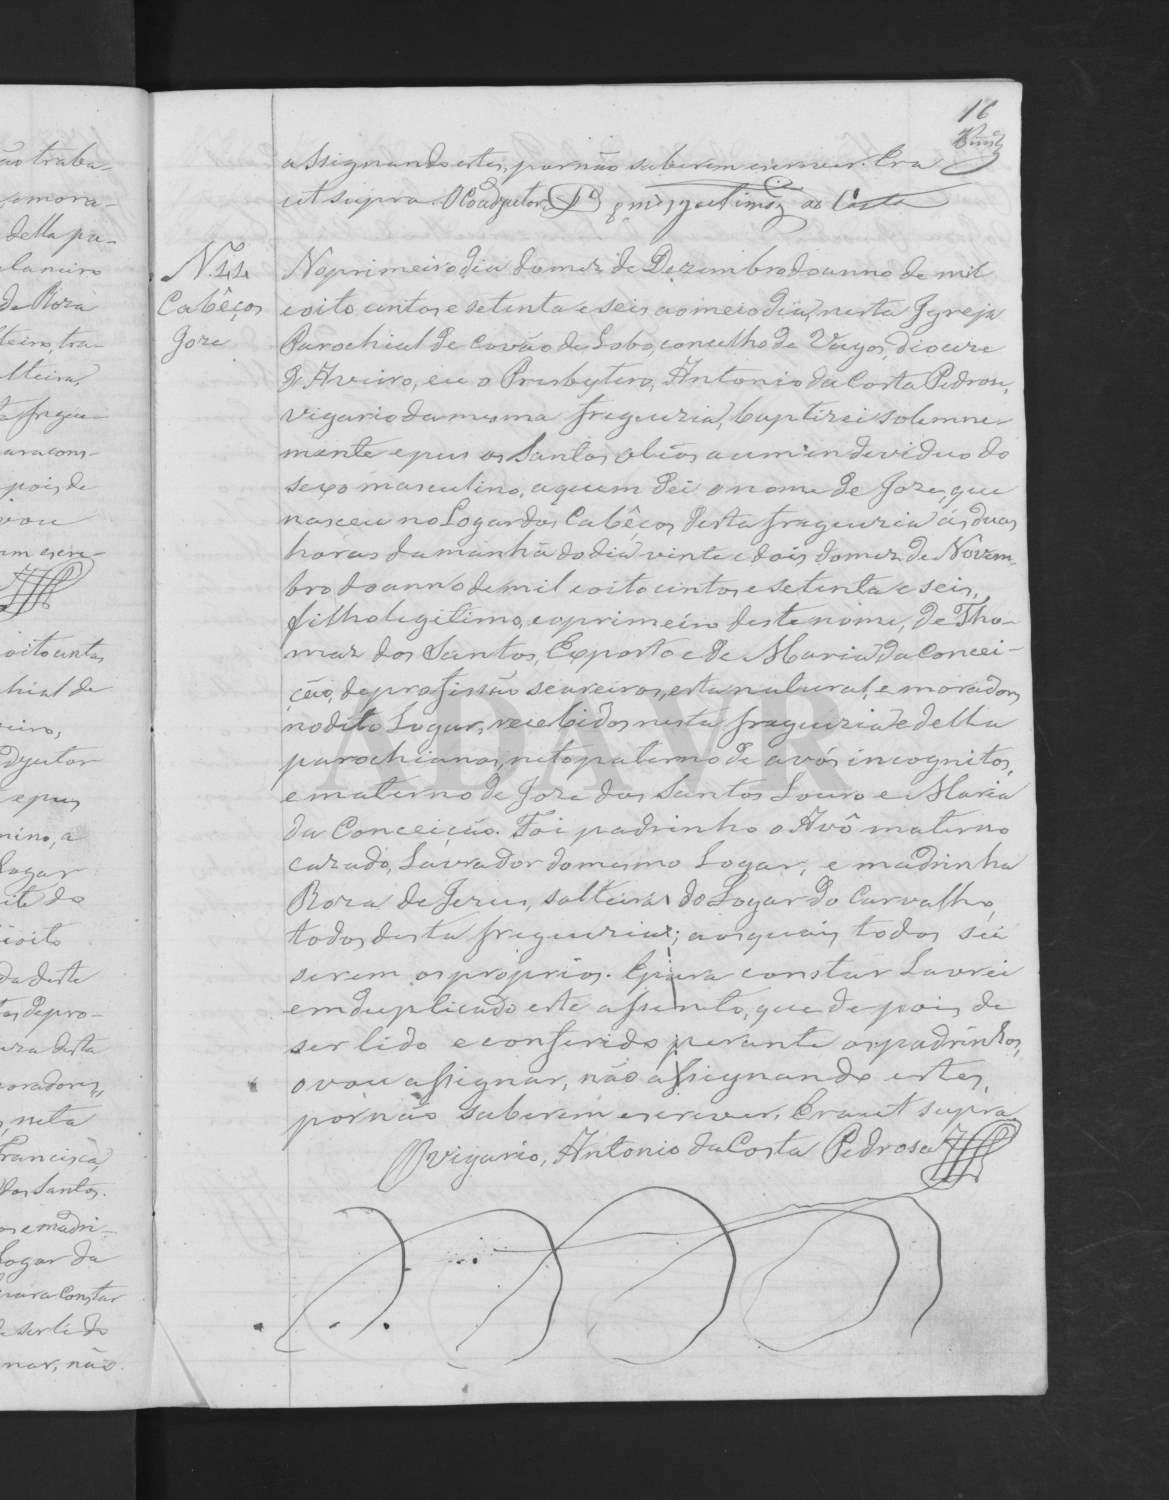 16
assignando estes, por não saberem escrever. Era
ut supra. O Coadjutor, da Costa
N. 44
Cabêços
Joze
No primeiro dia do mez de Dezembro do anno de mil
e oito centos e setenta e seis ao meio dia, nesta Igreja
Parochial de Covão do Lobo, concelho de Vagos, diocese
d'Aveiro, eu o Presbytero, Antonio da Costa Pedrosa,
vigario da mesma freguezia, baptizei solemne-
mente e puz os Santos oleos a um individuo do
sexo masculino, a quem dei o nome de Joze, que
nasceu no Logar dos Cabêços desta freguezia ás duas
horas da manhã do dia vinte e dois do mez de Novem-
bro do anno de mil e oito centos e setenta e seis,
filho legitimo, e o primeiro deste nome, de Tho-
maz dos Santos, Exposto e de Maria da Concei-
ção, de profissão seareiros, esta natural, e moradores
no dito Logar, recebidos nesta freguezia e della
parochianos, neto paterno de avós incognitos,
e materno de Joze dos Santos Louro e Maria
da Conceição. Foi padrinho o Avô materno
cazado, Lavrador do mesmo Logar, e madrinha
Roza de Jezus, solteira do Logar do Carvalho,
todos desta freguezia; aos quaes todos sei
serem os proprios. E para constar Lavrei
em duplicado este assento, que depois de
ser lido e conferido perante os padrinhos,
o vou assignar, não assignando estes,
por não saberem escrever. Era ut supra
O vigario, Antonio da Costa Pedrosa
ADAVR
ão traba-
e mora-
della pa-
de Roza
teiro, tra-
lteira,
fregue-
ara cons-
pois de
vou
em escre-
oito centos
chial de
eiro,
adjutor
e puz
nino, a
Logar
ite do
e oito
da deste
de pro-
desta
moradores,
neta
Francisca,
dos Santos.
e madri-
Logar da
para constar
de ser lido
nar, não